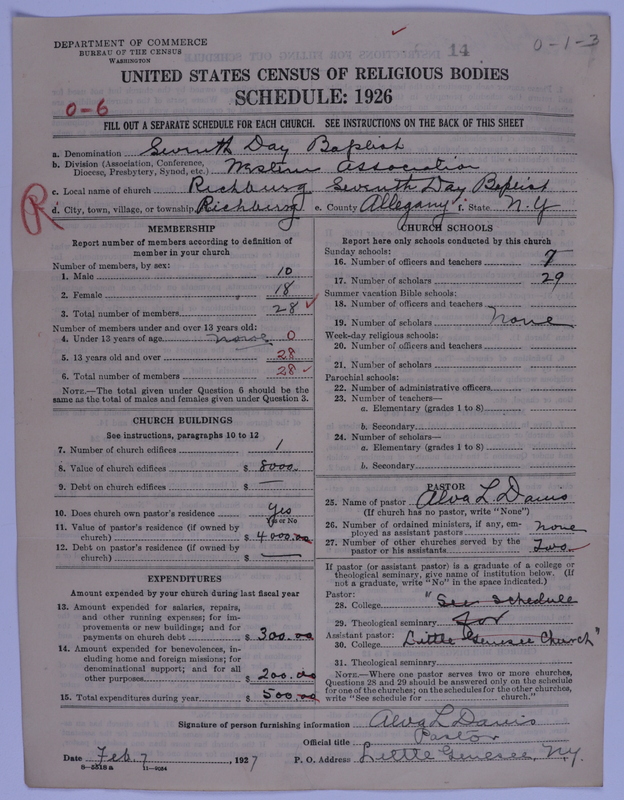 14
0-1-3
DEPARTMENT OF COMMERCE
BUREAU OF THE CENSUS
WASHINGTON
UNITED STATES CENSUS OF RELIGIOUS BODIES
SCHEDULE: 1926
0-6
FILL OUT A SEPARATE SCHEDULE FOR EACH CHURCH. SEE INSTRUCTIONS ON THE BACK OF THIS SHEET
a. Denomination Seventh Day Baptist
b. Division (Association, Conference, Diocese, Presbytery, Synod, etc.) Western Association
c. Local name of church Richburg Seventh Day Baptist
R
d. City, town, village, or township Richburg e. County Allegany f. State N.Y
MEMBERSHIP
Report number of members according to definition of
member in your church
Number of members, by sex:
1. Male 10
2. Female 18
3. Total number of members 28
Number of members under and over 13 years old:
4. Under 13 years of age none 0
5. 13 years old and over 28
6. Total number of members 28
NOTE.—The total given under Question 6 should be the
same as the total of males and females given under Question 3.
CHURCH BUILDINGS
See instructions, paragraphs 10 to 12
7. Number of church edifices 1
8. Value of church edifices $ 8000.
9. Debt on church edifices $ —
10. Does church own pastor's residence? Yes
Yes or No
11. Value of pastor's residence (if owned by
church) $ 4000.00
12. Debt on pastor's residence (if owned by
church) $ —
EXPENDITURES
Amount expended by your church during last fiscal year
13. Amount expended for salaries, repairs,
and other running expenses; for im-
provements or new buildings; and for
payments on church debt $ 300.00
14. Amount expended for benevolences, in-
cluding home and foreign missions; for
denominational support; and for all
other purposes $ 200.00
15. Total expenditures during year $ 500.00
CHURCH SCHOOLS
Report here only schools conducted by this church
Sunday schools:
16. Number of officers and teachers 7
17. Number of scholars 29
Summer vacation Bible schools:
18. Number of officers and teachers
19. Number of scholars None
Week-day religious schools:
20. Number of officers and teachers
21. Number of scholars
Parochial schools:
22. Number of administrative officers
23. Number of teachers—
a. Elementary (grades 1 to 8)
b. Secondary
24. Number of scholars—
a. Elementary (grades 1 to 8)
b. Secondary
PASTOR
25. Name of pastor Alva L. Davis
(If church has no pastor, write "None")
26. Number of ordained ministers, if any, em-
ployed as assistant pastors none
27. Number of other churches served by the
pastor or his assistants Two
If pastor (or assistant pastor) is a graduate of a college or
theological seminary, give name of institution below. (If
not a graduate, write "No" in the space indicated.)
Pastor:
28. College "See schedule
29. Theological seminary for
Assistant pastor:
30. College Little Genesee Church"
31. Theological seminary
NOTE.—Where one pastor serves two or more churches,
Questions 28 and 29 should be answered only on the schedule
for one of the churches; on the schedules for the other churches,
write "See schedule for church."
Signature of person furnishing information Alva L Davis
Official title Pastor
Date Feb. 7, 1927 P. O. Address Little Genesee, N.Y.
8-5518 a 11-9034